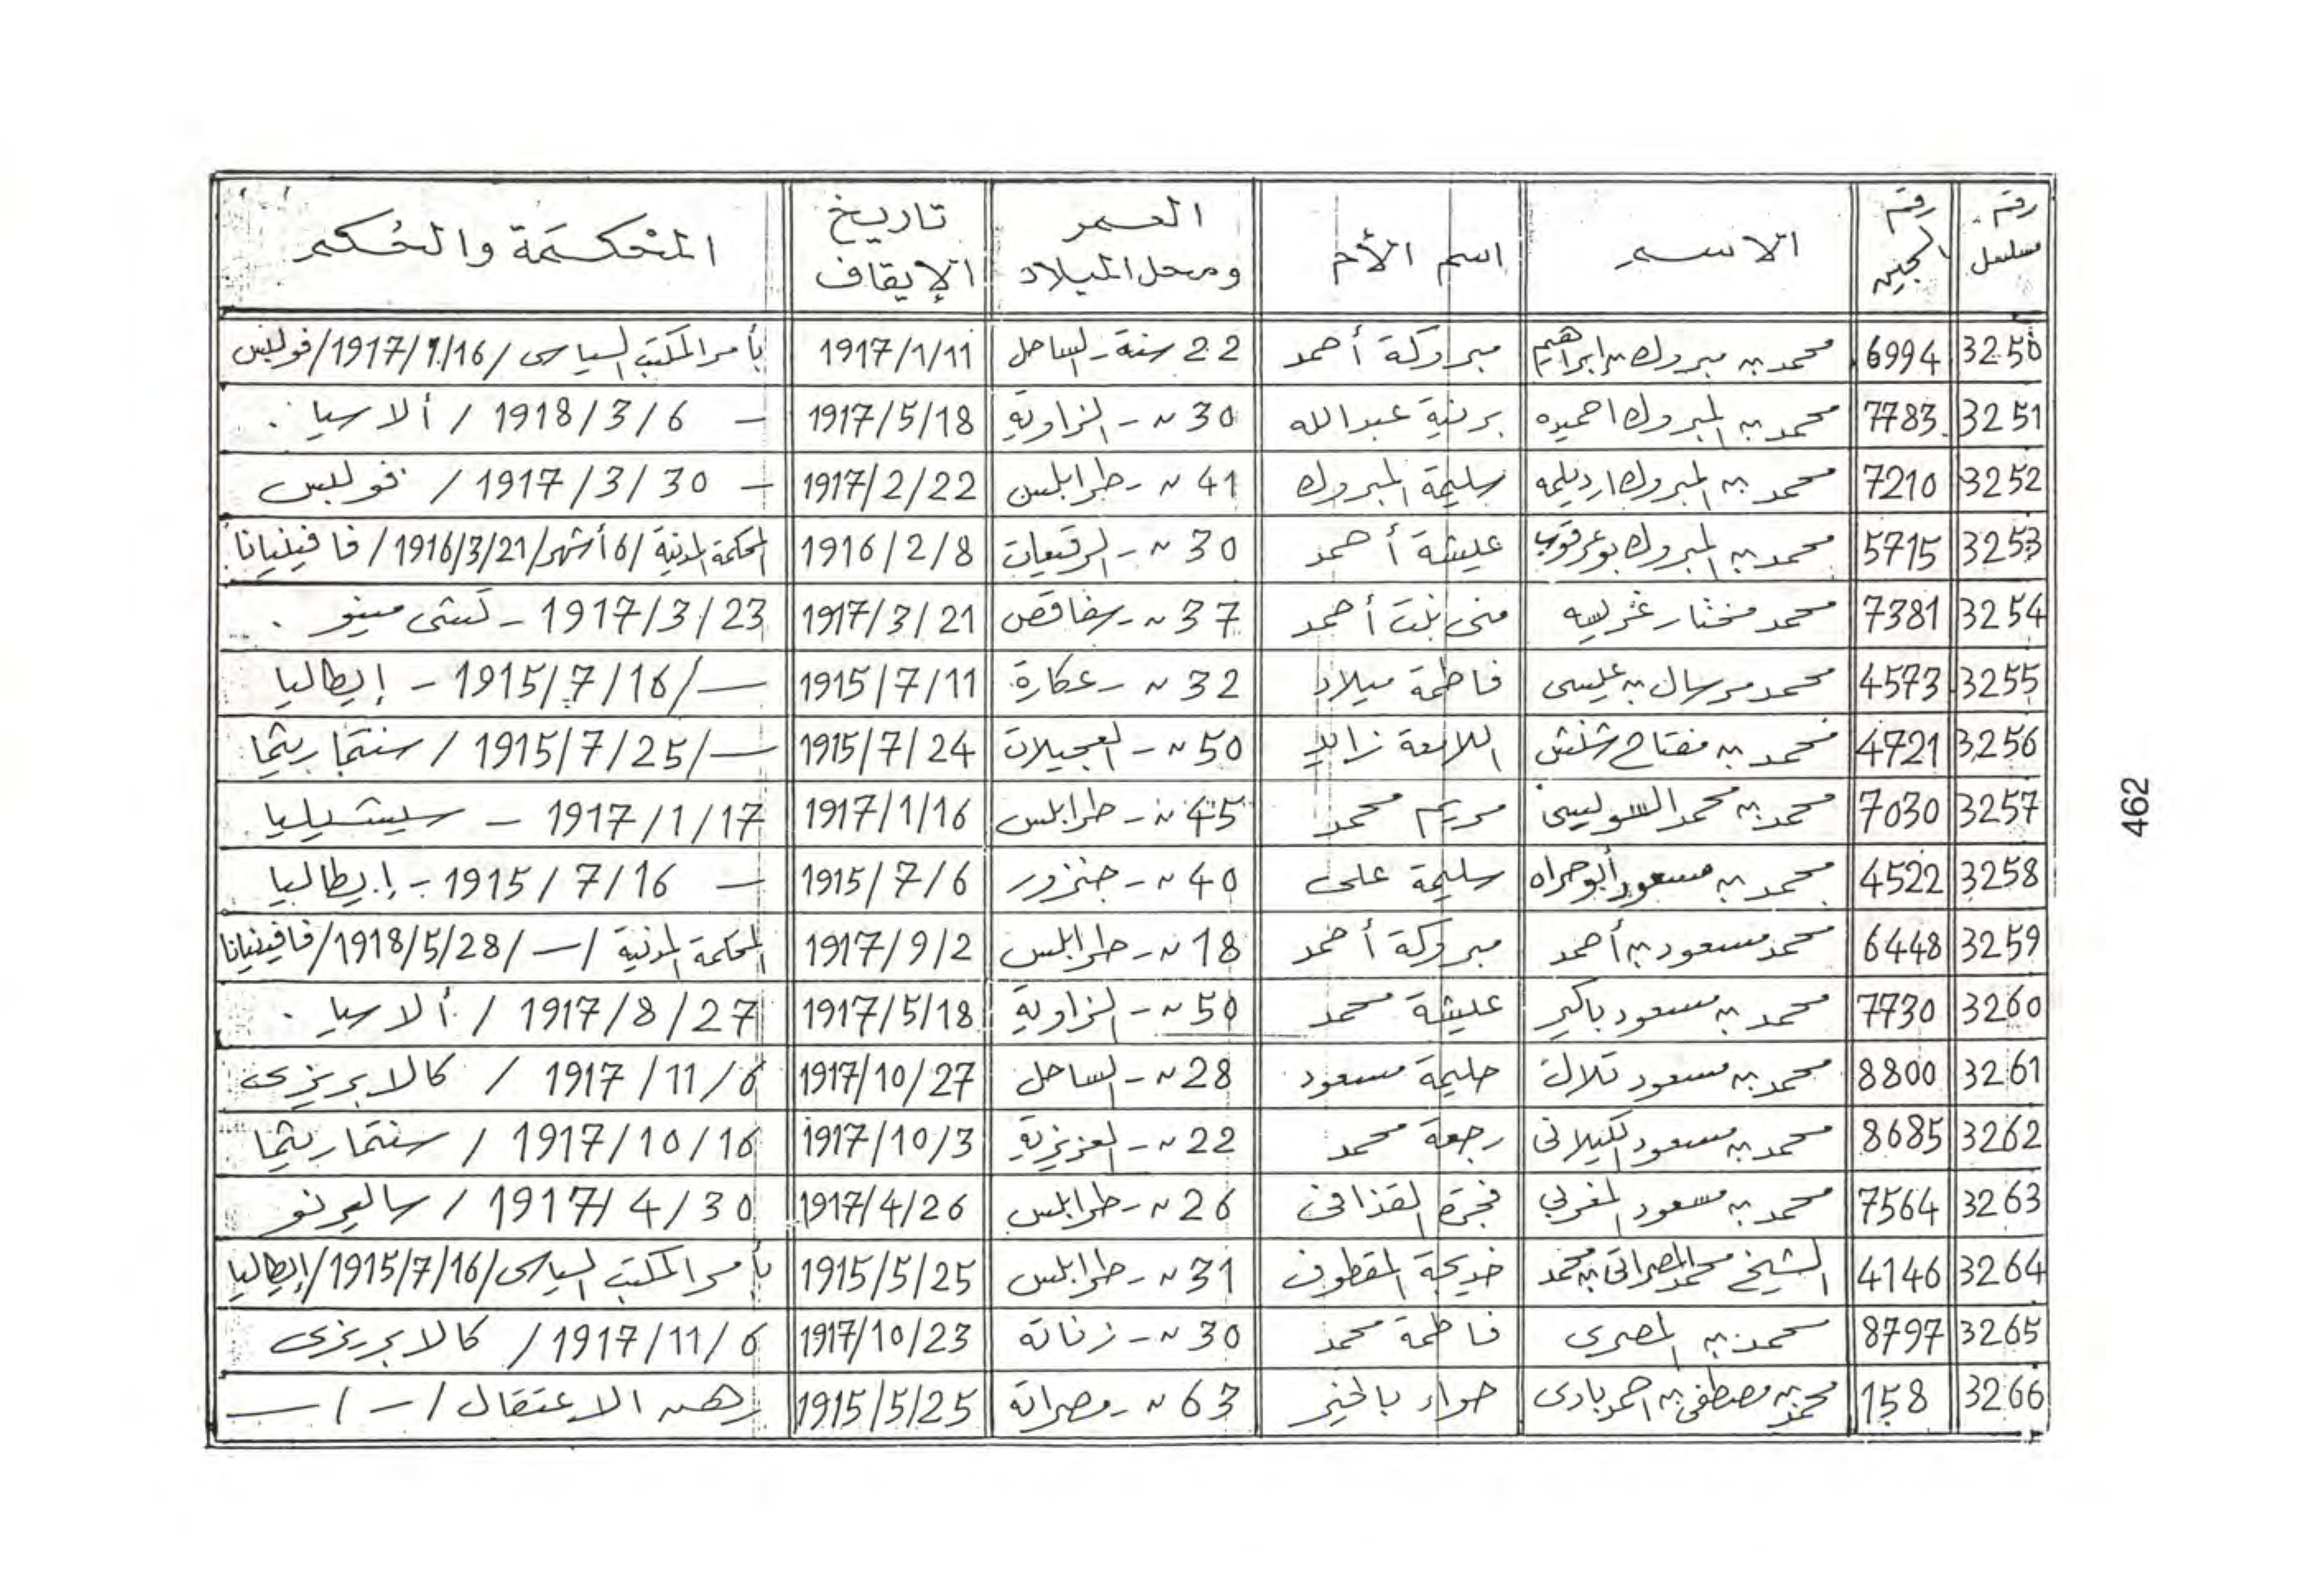 رقم مسلسل | رقم السجين | الاسم | اسم الأم | العمر ومحل الميلاد | تاريخ الإيقاف | المحكمة والحكم
3250 | 6994 | محمد بن مبروك بن ابراهيم | مبروكة أحمد | 22 سنة - الساحل | 1917/1/11 | بأمر المكتب السياسى / 1917/1/16 / فوليس
3251 | 7783 | محمد بن المبروك احميده | برنية عبدالله | 30 ~ - الزاوية | 1917/5/18 | — 1918/3/6 / ألاسيا .
3252 | 7210 | محمد بن المبروك ارديلمه | سليمة المبروك | 41 ~ - طرابلس | 1917/2/22 | — 1917/3/30 / فوليس
3253 | 5715 | محمد بن المبروك بوعرقوب | عيشة أحمد | 30 ~ - الرقيعات | 1916/2/8 | المحكمة المدنية / 6 أشهر / 1916/3/21 / فافينيانا
3254 | 7381 | محمد مختار غربيه | منى بنت أحمد | 37 ~ - صفاقص | 1917/3/21 | 1917/3/23 - كستى مينو .
3255 | 4573 | محمد مرسال بن عيسى | فاطمة ميلاد | 32 ~ - عكارة | 1915/7/11 | — / 1915/7/16 - إيطاليا
3256 | 4721 | محمد بن مفتاح شنش | اللامعة زايد | 50 ~ - العجيلات | 1915/7/24 | — / 1915/7/25 / سنتماريتما
3257 | 7030 | محمد بن محمد السويسى | مريم محمد | 45 ~ - طرابلس | 1917/1/16 | 1917/1/17 - سيتشيليا
3258 | 4522 | محمد بن مسعود أبوحراه | سليمة على | 40 ~ - جنزور | 1915/7/6 | — 1915/7/16 - إيطاليا
3259 | 6448 | محمد مسعود بن أحمد | مبروكة أحمد | 18 ~ - طرابلس | 1917/9/2 | المحكمة المدنية / — / 1918/5/28 / فافينيانا
3260 | 7730 | محمد بن مسعود باكير | عيشة محمد | 50 ~ - الزاوية | 1917/5/18 | 1917/8/27 / ألاسيا .
3261 | 8800 | محمد بن مسعود تلات | حليمة مسعود | 28 ~ - الساحل | 1917/10/27 | 1917/11/6 / كالابريزى
3262 | 8685 | محمد بن مسعود الكيلانى | رجعة محمد | 22 ~ - العزيزية | 1917/10/3 | 1917/10/16 / سنتماريتما
3263 | 7564 | محمد بن مسعود المغربي | فجرة القذافى | 26 ~ - طرابلس | 1917/4/26 | 1917/4/30 / ساليرنو
3264 | 4146 | الشيخ محمد المصراتى بن محمد | خديجة المقطوف | 31 ~ - طرابلس | 1915/5/25 | بأمر المكتب السياسى / 1915/7/16 / إيطاليا
3265 | 8797 | محمد بن المصرى | فاطمة محمد | 30 ~ - زناتة | 1917/10/23 | 1917/11/6 / كالابريزى
3266 | 158 | محمد بن مصطفى بن احمد بادى | حواء بالخير | 63 ~ - مصراتة | 1915/5/25 | رهن الاعتقال / — / —
462